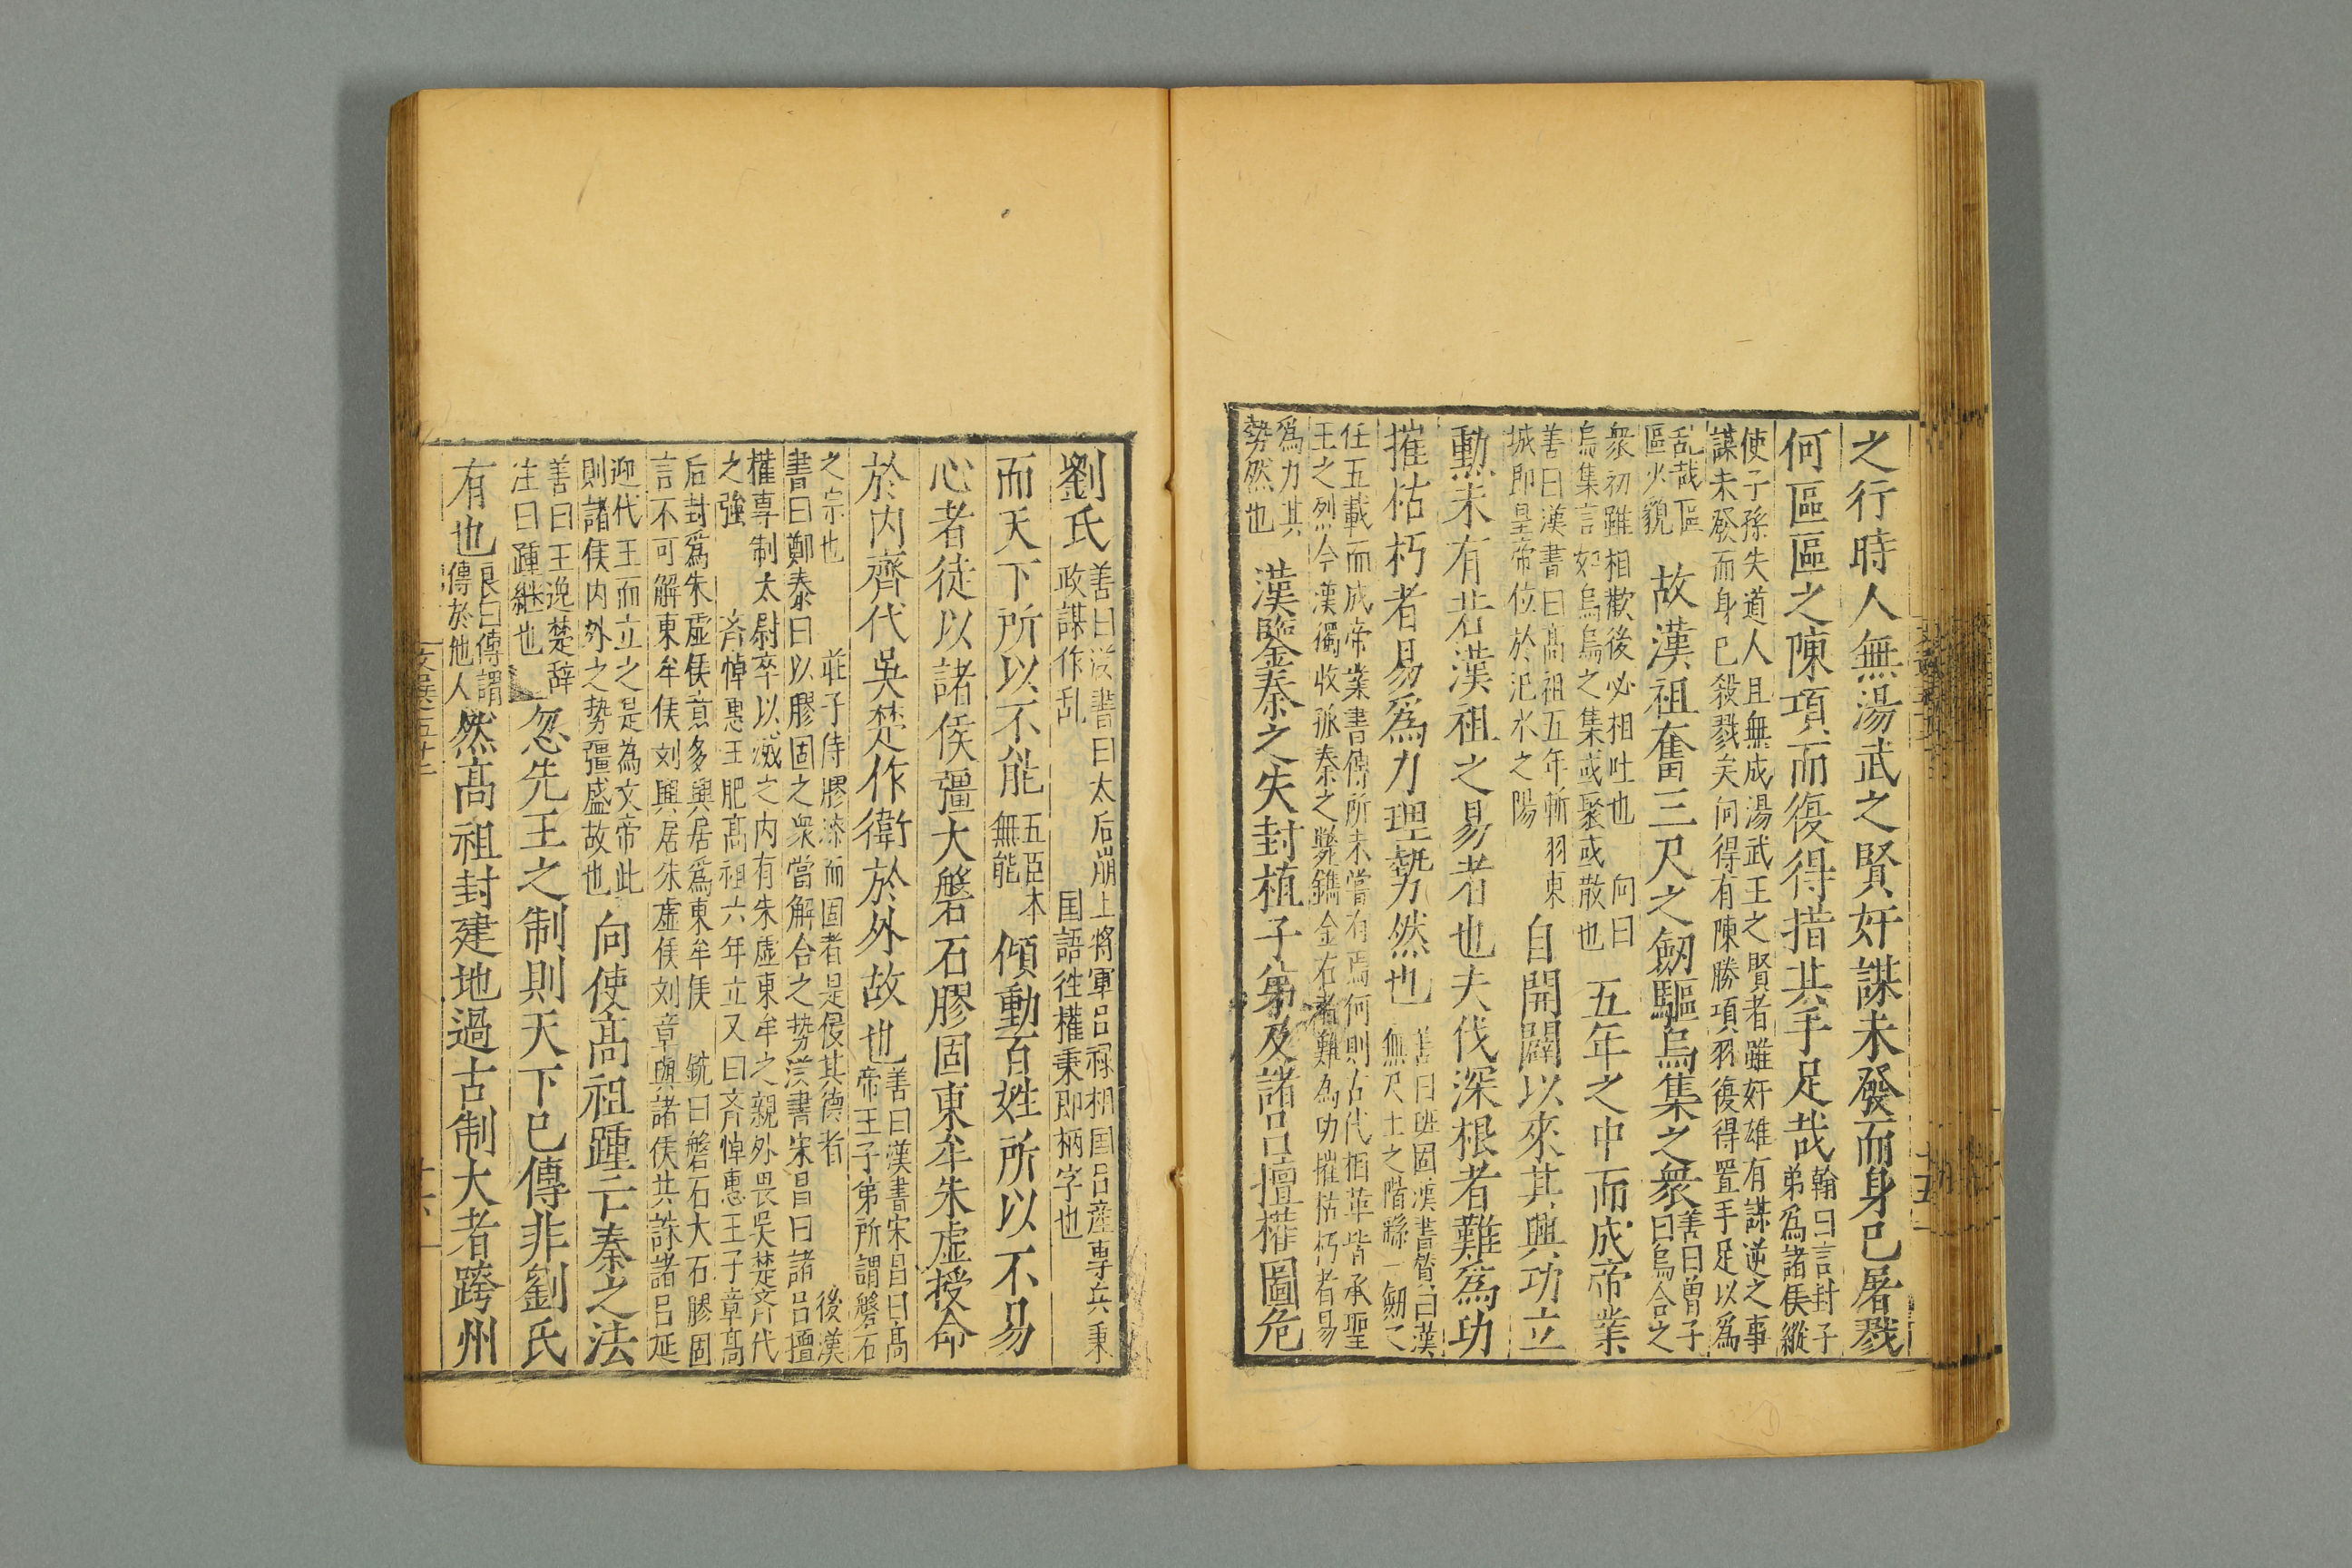 之行時人無湯武之賢奸謀未發而身已屠戮
何區區之陳項而復得措其手足哉翰曰言封子弟爲諸侯縱
使子孫失道人且無成湯武王之賢者雖奸雄有謀逆之事謀未發而身已殺戮矣何得有陳勝項羽復得置手足以爲
乱哉區區小貌故漢祖奮三尺之劒驅烏集之衆善曰曾子曰烏合之
衆初雖相歡後必相吐也向曰烏集言如烏鳥之集或聚或散也五年之中而成帝業
善曰漢書曰髙祖五年斬羽東城即皇帝位於汜水之陽自開闢以來其興功立
勲未有若漢祖之易者也夫伐深根者難爲功
摧枯朽者易爲力理勢然也善曰班固漢書贊曰漢無尺土之階繇一劒之
任五載而成帝業書傳所未嘗有焉何則古代相革皆承聖王之烈今漢獨收孤秦之弊鐫金石者難為功摧枯朽者易
爲力其勢然也漢鑒秦之失封植子弟及諸呂擅權圖危
劉氏善曰漢書曰太后崩上將軍吕禄相国吕產專兵秉政謀作乱国語徃權秉即柄字也
而天下所以不能五臣本無能傾動百姓所以不易
心者徒以諸侯彊大磐石膠固東牟朱虚授命
於内齊代吳楚作衛於外故也善曰漢書宋昌曰髙帝王子弟所謂磐石
之宗也莊子侍膠漆而固者是侵其德者後漢書曰鄭泰曰以膠固之衆當解合之势漢書宋昌曰諸呂擅
權専制太尉卒以滅之内有朱虚東牟之親外畏吳楚齐代之強齐悼惠王肥髙祖六年立又曰齐悼惠王子章髙
后封爲朱虚侯章弟興居爲東牟侯銑曰磐石大石膠固言不可解東牟侯刘興居朱虚侯刘章與諸侯共誅諸呂延
迎代王而立之是為文帝此則諸侯内外之势彊盛故也向使髙祖踵亡秦之法
善曰王逸楚辞注曰踵継也忽先王之制則天下已傳非劉氏
有也良曰傳謂傳於他人然髙祖封建地過古制大者跨州